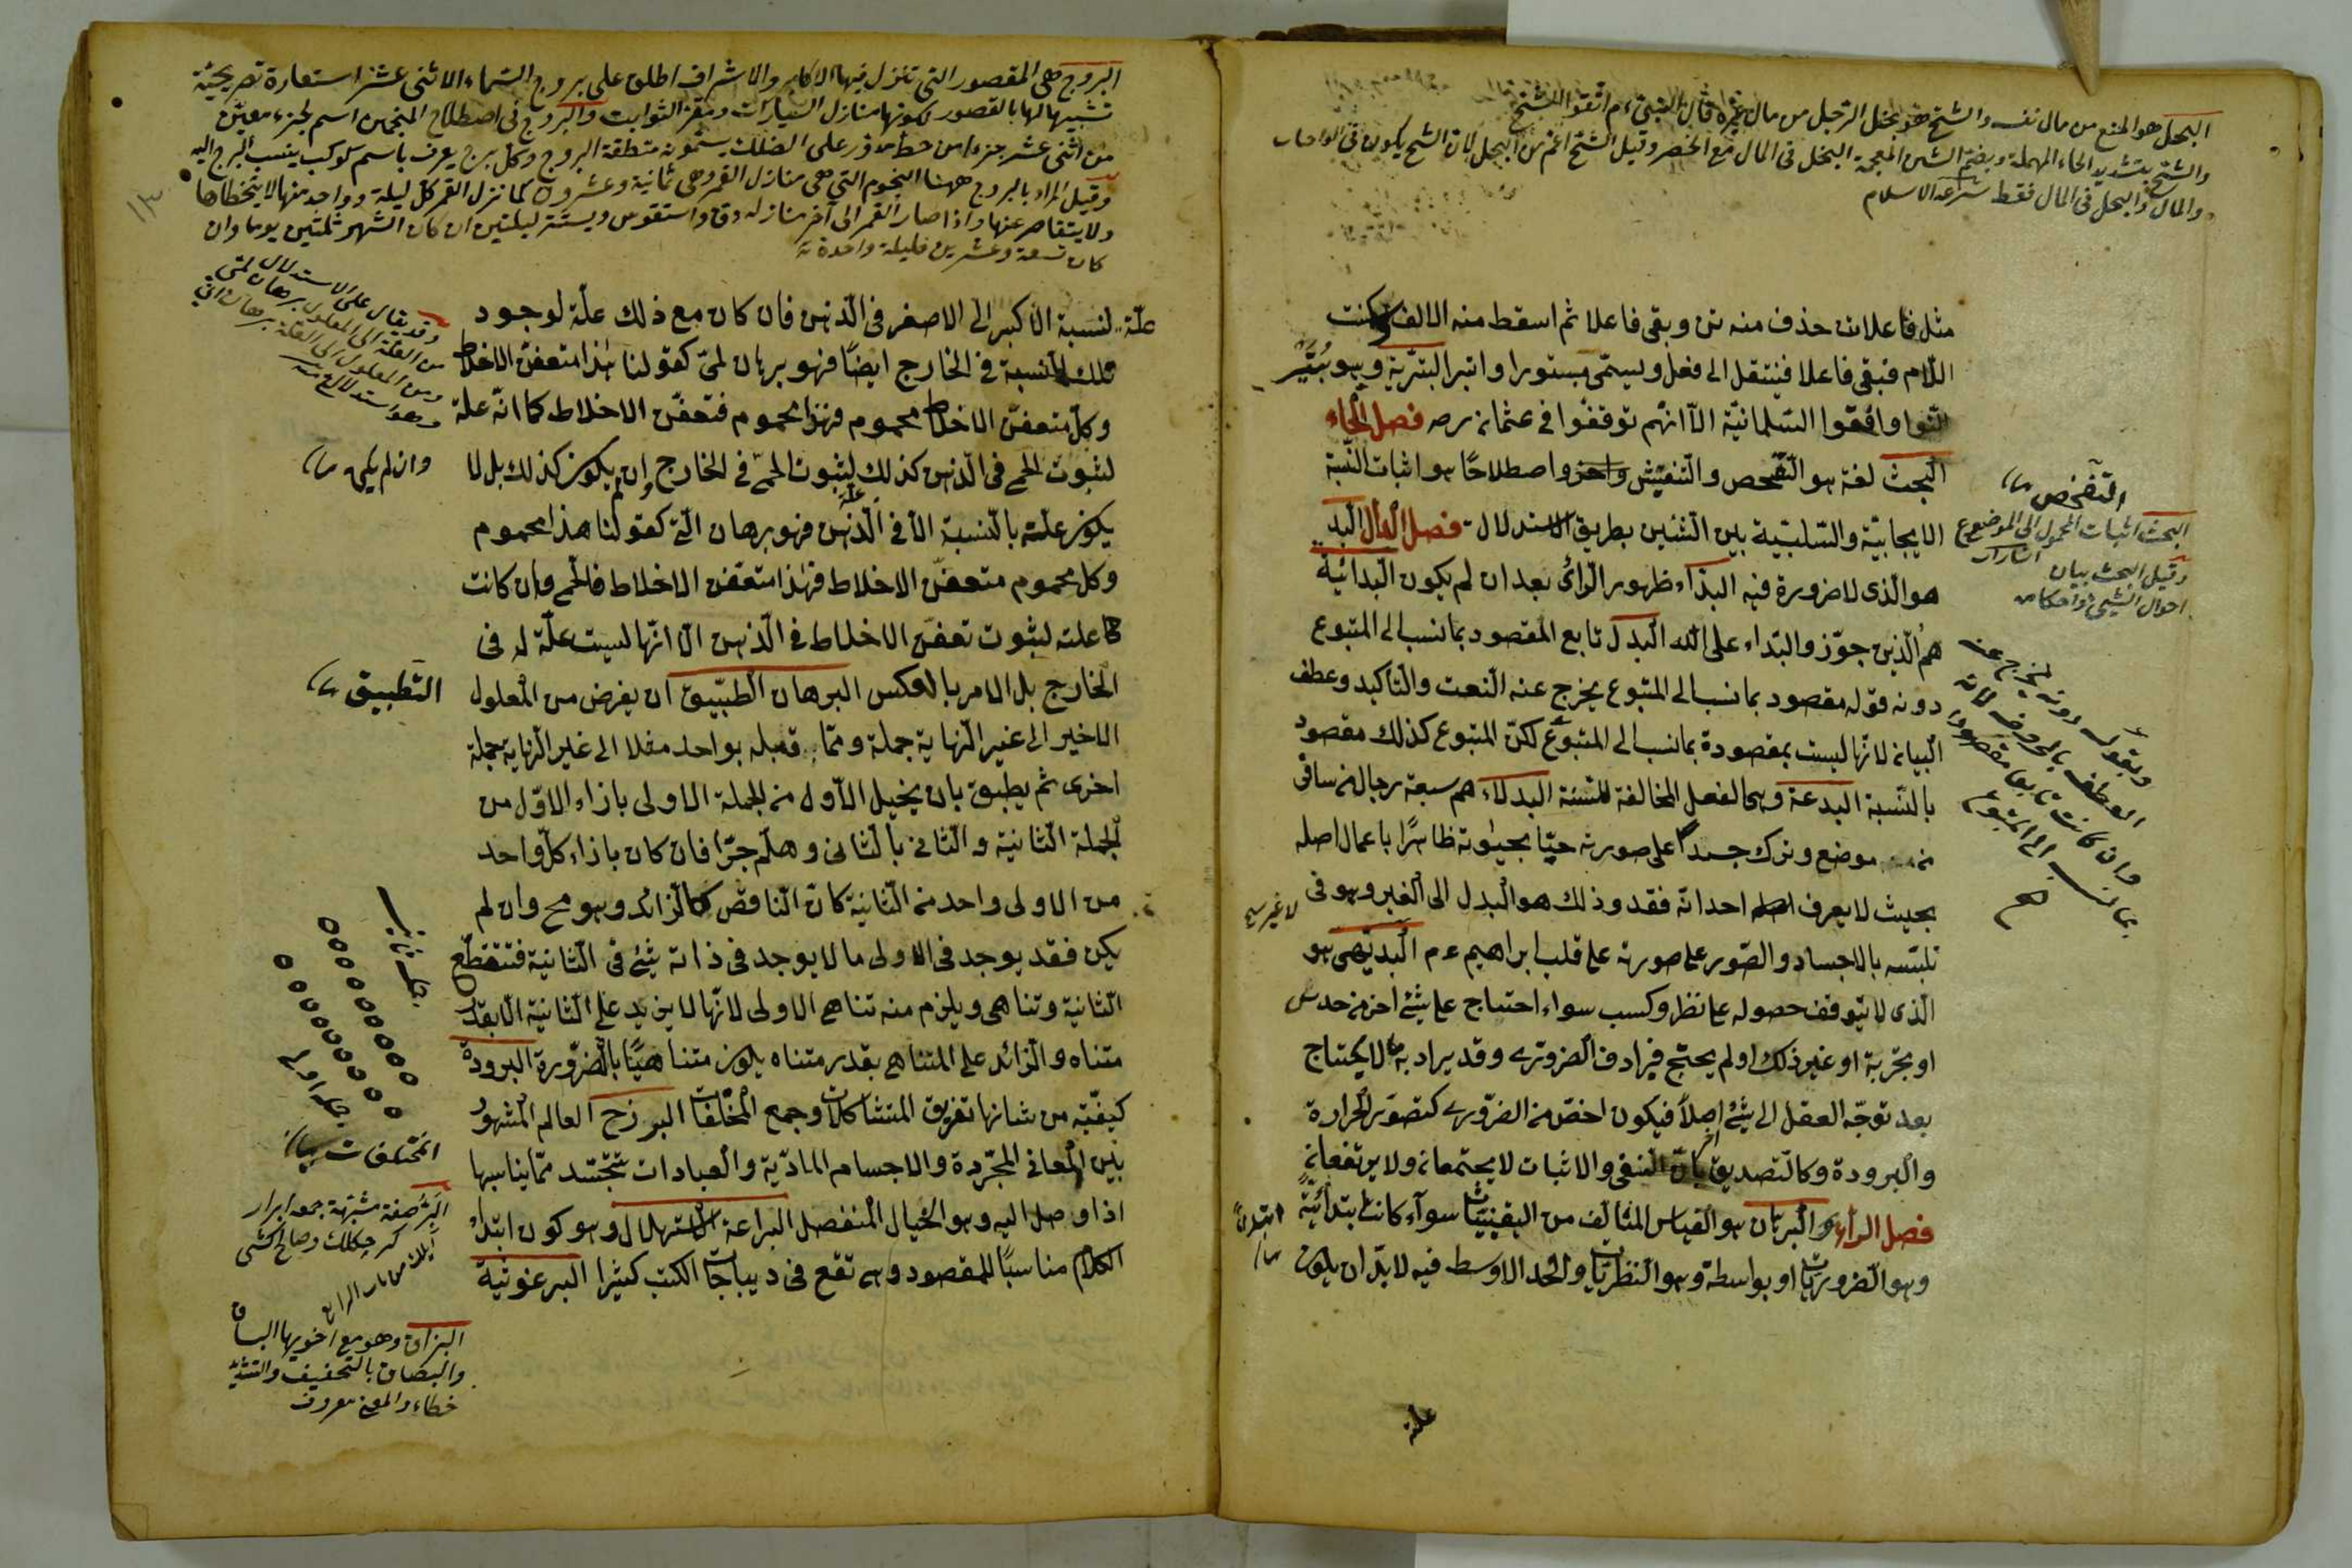 البخل هو المنع من مال نفسه والشح هو بخل الرجل من مال غيره قال النبي ءم اتقوا الشح
والشح بتشديد الحاء المهملة وبضم الشين المعجمة البخل في المال مع الحرص وقيل الشح اعم من البخل لان الشح يكون في الواجبات
والمال والبخل في المال فقط شرعة الاسلام
مثل فاعلاتن حذف منه تن وبقى فاعلا ثم اسقط منه الالف وسكنت
اللام فبقى فاعل فينتقل الى فعل ويسمى مبتورا وابتر البترية وهو بتير
الثوا وافقوا السلمانية الا انهم توقفوا في عثمان رضه فصل الحاء
البحث لغة هو التفحص والتفتيش واصطلاحا هو اثبات النسبة
الايجابية والسلبية بين الشئين بطريق الاستدلال فصل الدال البد
هو الذى لا ضرورة فيه البداء ظهور الرائ بعد ان لم يكون البدائية
هم الذين جوّزوا البداء على الله البدل تابع المقصود بما نسب الى المتبوع
دونه قوله مقصود بما نسب الى المتبوع يخرج عنه النعت والتاكيد وعطف
البيان لانها ليست بمقصودة بما نسب الى المتبوع لكن المتبوع كذلك مقصود
بالنسبة البدعة وهى الفعل المخالفة للسنة البدلاء هم سبعة رجال من سافر
من موضع وترك جسدا على صورته حيّا بحيوته ظاهرا باعمال اصله
بحيث لا يعرف احد انّه فقد وذلك هو البدل الى الغير وهو في
لا غير صح
تلبّسه بالاجساد والصّور على صورته على قلب ابراهيم ءم البديهى هو
الذى لا يتوقف حصوله على نظر وكسب سواء احتاج على شئ اخر من حدس
او تجربة او غير ذلك او لم يحتج فيرادف الضرورى وقد يراد به ما لا يحتاج
بعد توجّه العقل الى شئ اصلا فيكون اخصّ من الضرورى كتصوّر الحرارة
والبرودة وكالتصديق بان النفى والاثبات لا يجتمعان ولا يرتفعان
فصل الراء البرهان هو القياس المثالّف من اليقينيّات سواء كانت ابتدائية
وهو الضروريات او بواسطة وهو النظريات والحد الاوسط فيه لا بدّ ان يكون
علّة
التفحّص
البحث اثبات المحمول الى الموضوع
وقيل البحث بيان
احوال الشئ واحكامه
وبقوله دونه يخرج عنه
العطف بالحروف لانه
وان كانت تابعا مقصودا
بما نسب الى المتبوع
ابتداءً
البروج هى القصور التى تنزل فيها الاكابر والاشراف اطلق على بروج السماء الاثنى عشر استعارة تصريحية
تشبيها لها بالقصور لكونها منازل السيارات ومقر الثوابت والبروج فى اصطلاح المنجمين اسم لجزء معين
من اثنى عشر جزءا من خط مدوّر على الفلك يسمّونه منطقة البروج وكل برج يعرف باسم كوكب ينسب البرج اليه
وقيل المراد بالبروج ههنا النجوم التى هى منازل القمر وهى ثمانية وعشرون كما نزل القمر كل ليلة وواحد منها لا يتخطاها
ولا يتقاصر عنها واذا صار القمر الى آخر منازله دق واستقوس ويستتر ليلتين ان كان الشهر ثلثين يوما وان
كان تسعة وعشرين فليلة واحدة
١٣
علّة لنسبة الاكبر الى الاصغر في الذهن فان كان مع ذلك علّة لوجود
تلك النسبة في الخارج ايضًا فهو برهان لمّى كقولنا هذا متعفّن الاخلاط
وكل متعفّن الاخلاط محموم فهذا محموم فتعفّن الاخلاط كما انّه علة
لثبوت الحمى في الذهن كذلك لثبوت الحمّى في الخارج وان لم يكون كذلك بل لا
يكون علّة بالنسبة الا في الذهن فهو برهان انّى كقولنا هذا محموم
وكل محموم متعفّن الاخلاط فهذا متعفّن الاخلاط فالحمى وان كانت
علة لثبوت تعفّن الاخلاط في الذهن الا انّها ليست علّة له في
الخارج بل الامر بالعكس البرهان الطبّيق ان يفرض من المعلول
الاخير الى غير النهاية جملة وممّا قبله بواحد مثلا الى غير النهاية جملة
اخرى ثم يطبق بان يخيل الاول من الجملة الاولى بازاء الاوّل من
الجملة الثانية والثاني بالثاني وهلمّ جرّا فان كان بازاء كل واحد
من الاولى واحد من الثانية كان الناقص كالزائد وهو مح وان لم
يكن فقد يوجد في الاولى ما لا يوجد في ذاته شئ في الثانية فتنقطع
الثانية وتناهى ويلزم منه تناهى الاولى لانّها لا يزيد على الثانية الا بقدر
متناه والزائد على المتناهى بقدر متناه يكون متناهيًا بالضرورة البرودة
كيفيّة من شانها تفريق المتشاكلات وجمع المختلفات البرزخ العالم المشهور
بين المعاني المجرّدة والاجسام المادّية والعبادات تتجسّد ممّا يناسبها
اذا وصل اليه وهو الخيال المنفصل البراعة الاستهلال وهو كون ابتداء
الكلام مناسبًا للمقصود وهى تقع في ديباجات الكتب كثيرا البرغوثية
وقد يقال على الاستدلال
من العلة الى المعلول برهان لمّى
ومن المعلول الى العلة برهان انّى
وان لم يكن
التّطبيق
جمله ثانيه
جمله اولى
المختلفات
البرّ صفة مشبّهة جمعه ابرار
البزاق وهو مع اخويها البساق
والبصاق بالتخفيف والتشديد
خطاء والمعنى معروف